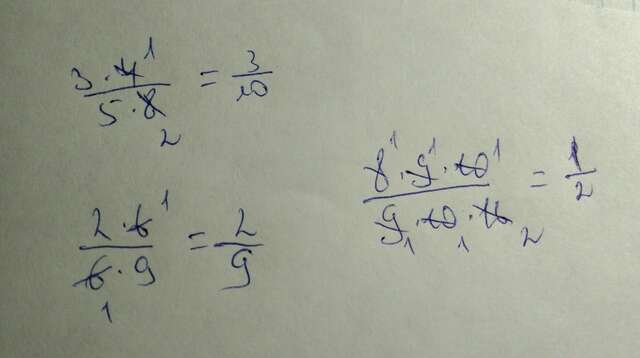 3 · 4 ¹ / 5 · 8 ₂ = 3/10
2 · 6 ¹ / 6 ₁ · 9 = 2/9
8 ¹ · 9 ¹ · 10 ¹ / 9 ₁ · 10 ₁ · 16 ₂ = 1/2